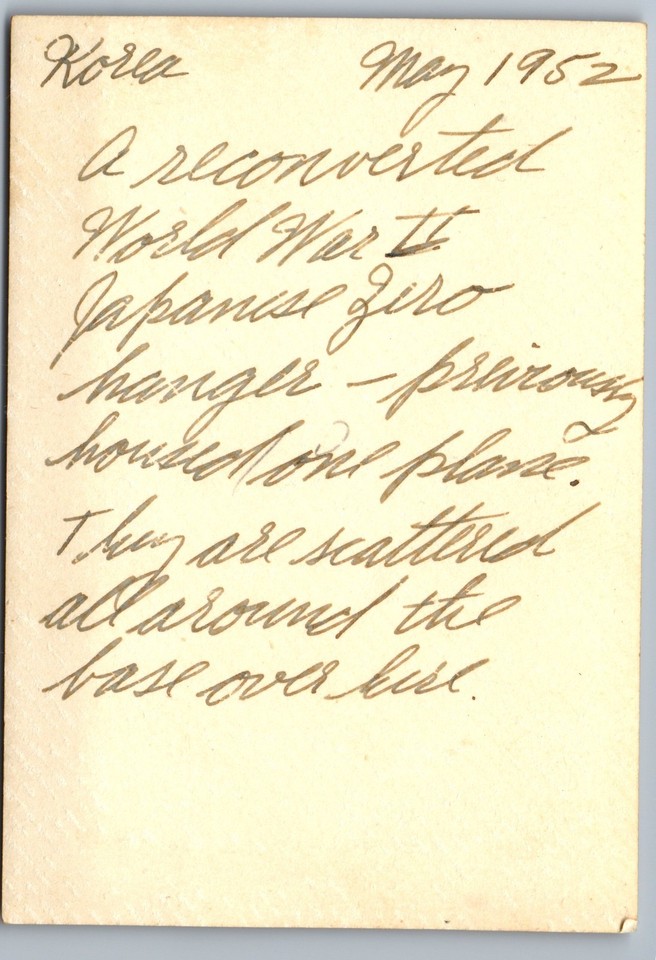 Korea May 1952
A reconverted
World War II
Japanese Zero
hanger - previously
housed one plane.
They are scattered
all around the
base over here.